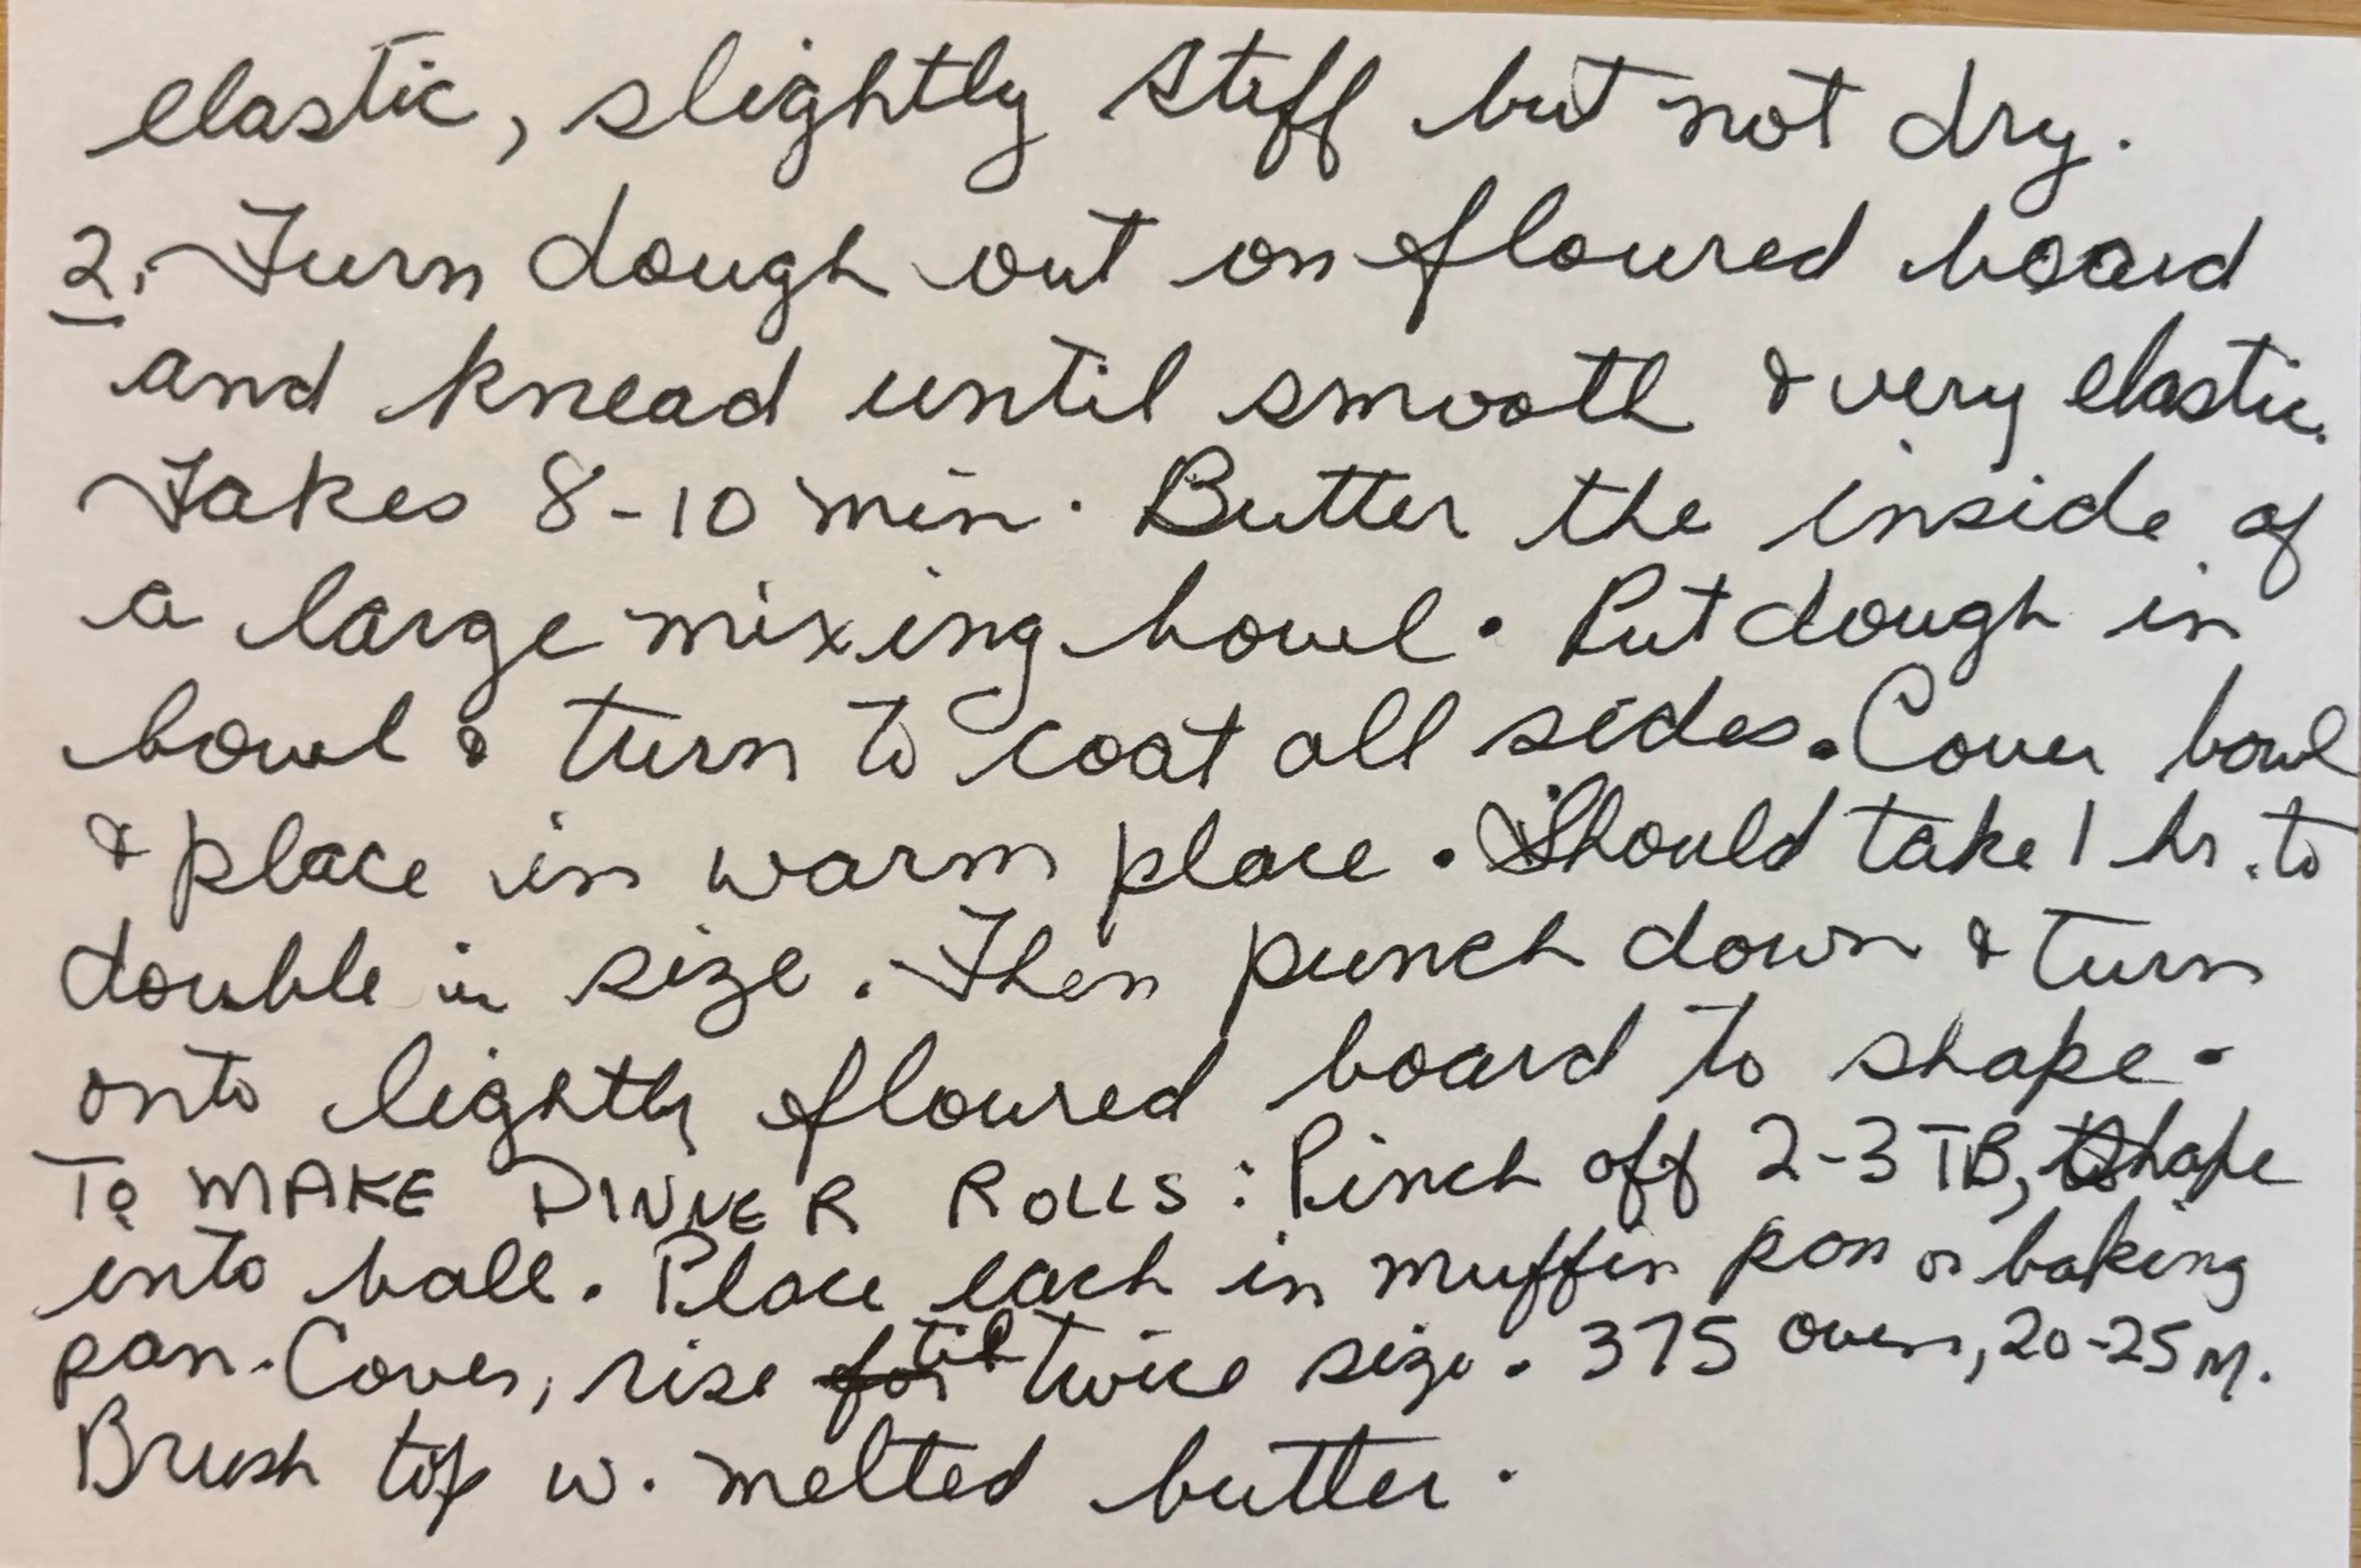 elastic, slightly stiff but not dry.
2. Turn dough out on floured board
and knead until smooth & very elastic.
Takes 8-10 min. Butter the inside of
a large mixing bowl. Put dough in
bowl & turn to coat all sides. Cover bowl
& place in warm place. Should take 1 hr. to
double in size. Then punch down & turn
onto lightly floured board to shape.
To MAKE DINNER ROLLS: Pinch off 2-3 TB, shape
into ball. Place each in muffin pan or baking
pan. Cover, rise til twice size. 375 oven, 20-25 M.
Brush top w. melted butter.